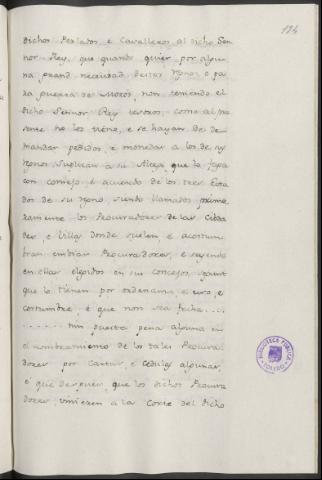 124
dichos Perlados, e Cavalleros al dicho Señ
nor Rey, que quando quier por algu
na grand necesidad destos Rynos o pa
ra guerra de Moros, non teniendo el
dicho Señor Rey tesoros, como al pre
sente no los tiene, e se hayan de de
mandar pedidos, e monedar a los de sus
Rynos suplican a su Alteza que lo faga
con consejo, é acuerdo de los tres Esta
dos de su Ryno, siendo llamados prime
ramente los Procuradores de las Cibda
des, e Villas donde suelen, e acostum
bran embiar Procuradores, e seyendo
en ellas elegidos en sus concejos, segunt
que lo tienen por ordenanza, e uso, e
costumbre, é que non sea fecha....
....... nin puesta pena alguna en
el nombramiento de los tales Procura
dores por Cartas, e Cedulas algunas,
é que despues, que los dichos Procura
dores vinieren a la Corte del dicho
BIBLIOTECA PUBLICA
TOLEDO